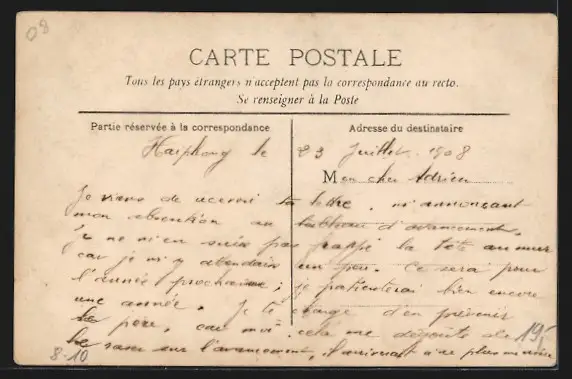 08
CARTE POSTALE
Tous les pays étrangers n'acceptent pas la correspondance au recto.
Se renseigner à la Poste
Partie réservée à la correspondance
Adresse du destinataire
Haiphong le 23 Juillet 1908
Mon cher Adrien
Je viens de recevoir ta lettre, m'annonçant
mon abstention au tableau d'avancement.
Je ne m'en suis pas frappé la tête au mur
car je m'y attendais un peu. Ce sera pour
l'année prochaine; je patienterai bien encore
une année. Je te charge d'en prévenir
père, car moi cela me dégoûte de
raser sur l'avancement, n'a plus
19,
8-10